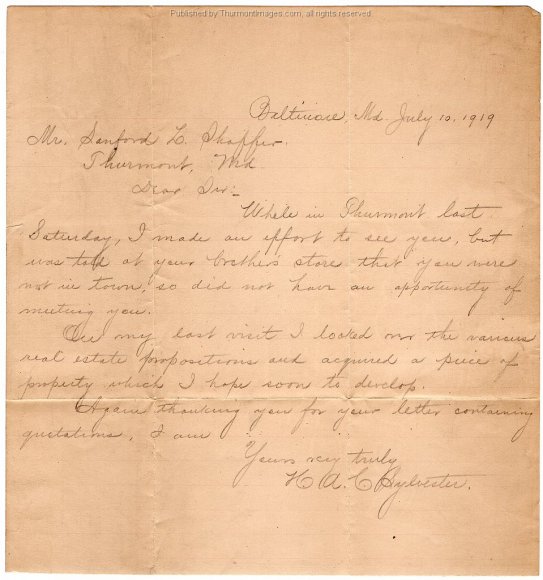 Published by ThurmontImages.com, all rights reserved
Baltimore, Md. July 10, 1919
Mr. Sanford L. Shaffer.
Thurmont, Md.
Dear Sir:-
While in Thurmont last
Saturday, I made an effort to see you, but
was told at your brother's store that you were
not in town, so did not have an opportunity of
meeting you.
On my last visit I looked over the various
real estate propositions and acquired a piece of
property which I hope soon to develop.
Again thanking you for your letter containing
quotations, I am
Yours very truly
H. A. C. Sylvester.